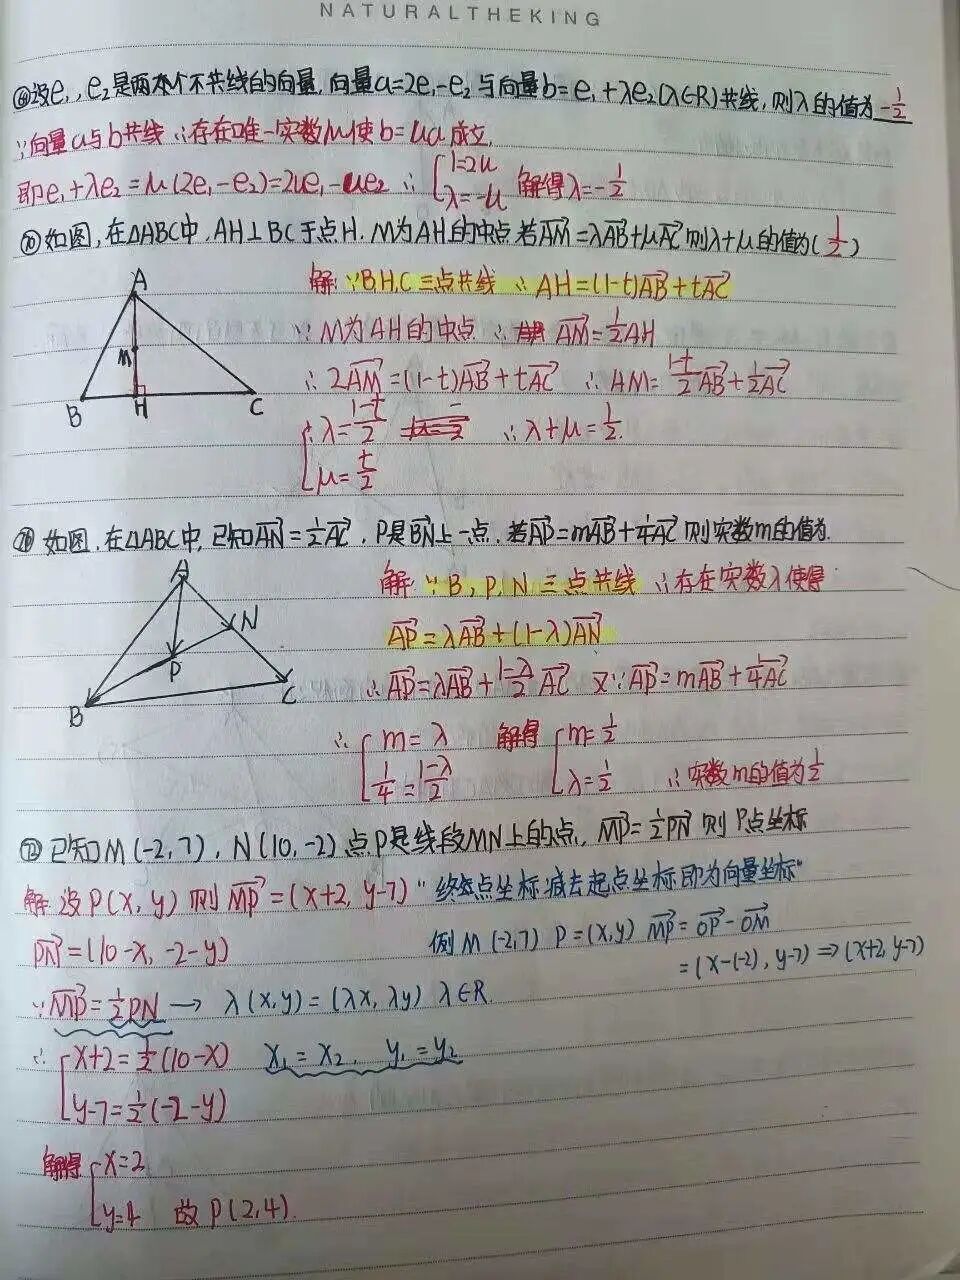 NATURALTHEKING
㊻设e₁,e₂是两个不共线的向量,向量a=2e₁-e₂与向量b=e₁+λe₂(λ∈R)共线,则λ的值为-1/2
∵向量a与b共线 ∴存在唯一实数μ使b=μa成立,
即e₁+λe₂=μ(2e₁-e₂)=2μe₁-μe₂ ∴ {1=2μ λ=-μ 解得λ=-1/2
⑩如图,在△ABC中,AH⊥BC于点H,M为AH的中点若AM=λAB+μAC则λ+μ的值为(1/2)
解:∵B,H,C三点共线 ∴AH=(1-t)AB+tAC
∵M为AH的中点 ∴AM=1/2AH
∴2AM=(1-t)AB+tAC ∴AM=1-t/2AB+1/2AC
∴{λ=1-t/2 μ=t/2 ∴λ+μ=1/2.
A
M
B H C
如图,在△ABC中,已知AN=1/2AC,P是BN上一点,若AP=mAB+1/4AC则实数m的值为.
解:∵B,P,N三点共线 ∴存在实数λ使得
AP=λAB+(1-λ)AN
∴AP=λAB+1-λ/2AC 又∵AP=mAB+1/4AC
∴{m=λ 1/4=1-λ/2 解得{m=1/2 λ=1/2 ∴实数m的值为1/2
A
N
P
B C
⑫已知M(-2,7),N(10,-2)点P是线段MN上的点,MP=1/2PN则P点坐标
解:设P(x,y)则MP=(x+2,y-7)"终点坐标减去起点坐标即为向量坐标"
PN=(10-x,-2-y) 例M(-2,7) P=(x,y) MP=OP-OM
=(x-(-2),y-7)⇒(x+2,y-7)
∵MP=1/2PN→λ(x,y)=(λx,λy) λ∈R
∴{x+2=1/2(10-x) x₁=x₂, y₁=y₂
y-7=1/2(-2-y)
解得{x=2
y=4 故P(2,4).